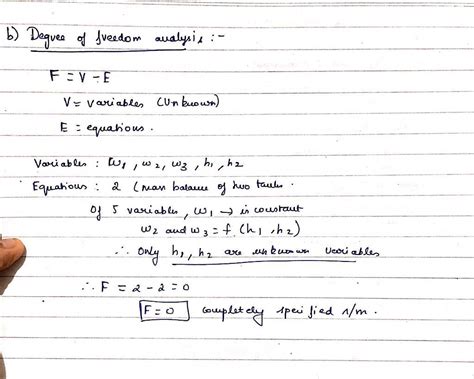 b) Degree of freedom analysis :-
F = V - E
V = variables (Unknown)
E = equations .
Variables : w₁, w₂, w₃, h₁, h₂
Equations : 2 (mass balance of two tanks .
Of 5 variables, w₁ → is constant
w₂ and w₃ = f (h₁, h₂)
∴ Only h₁, h₂ are unknown variables
∴ F = 2 - 2 = 0
F = 0 completely specified s/m .